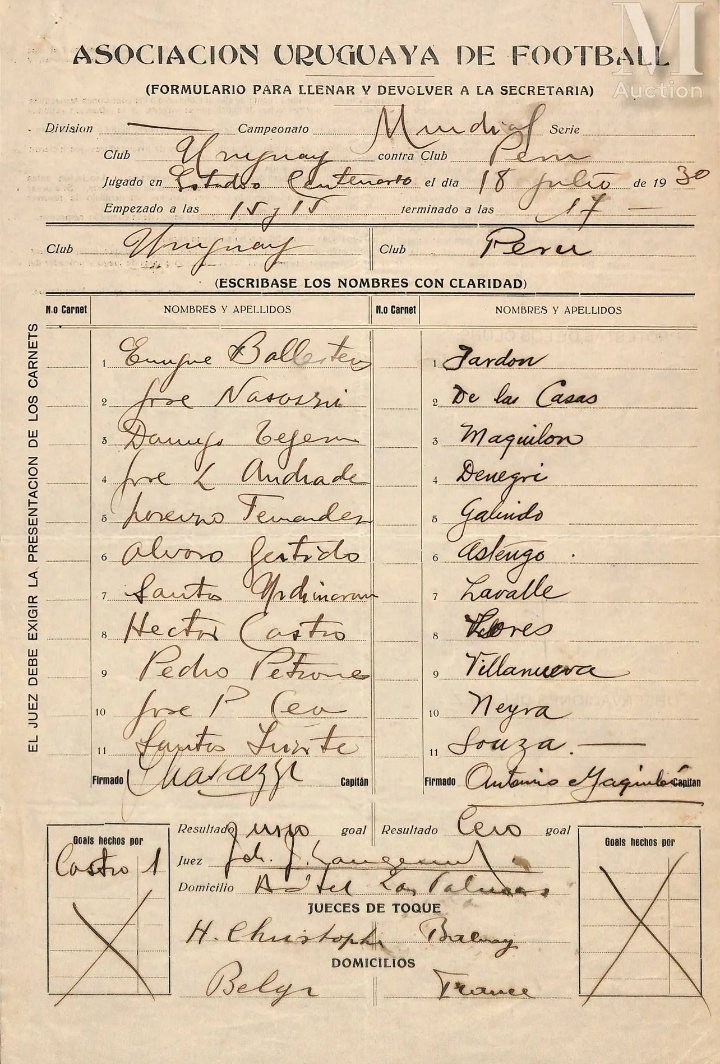 M
Auction
ASOCIACION URUGUAYA DE FOOTBALL
(FORMULARIO PARA LLENAR Y DEVOLVER A LA SECRETARIA)
Division — Campeonato Mundial Serie
Club Uruguay contra Club Peru
Jugado en Estadio Centenario el día 18 julio de 1930
Empezado a las 15 y 15 terminado a las 17 —
Club Uruguay Club Peru
(ESCRIBASE LOS NOMBRES CON CLARIDAD)
N.o Carnet NOMBRES Y APELLIDOS N.o Carnet NOMBRES Y APELLIDOS
EL JUEZ DEBE EXIGIR LA PRESENTACION DE LOS CARNETS
1 Enrique Ballesteros 1 Pardon
2 Jose Nasazzi 2 De las Casas
3 Domingo Tejera 3 Maquilon
4 Jose L Andrade 4 Denegri
5 Lorenzo Fernandez 5 Galindo
6 Alvaro Gestido 6 Astengo
7 Santos Urdinaran 7 Lavalle
8 Hector Castro 8 Flores
9 Pedro Petrone 9 Villanueva
10 Jose P Cea 10 Neyra
11 Santos Iriarte 11 Souza. —
Firmado JNasazzi Capitán Firmado Antonio Maquilón Capitan
Resultado uno goal Resultado Cero goal
Goals hechos por
Castro 1
Goals hechos por
Juez
Domicilio Hotel Las Palmas
JUECES DE TOQUE
H. Christophe Balway
DOMICILIOS
Belge France